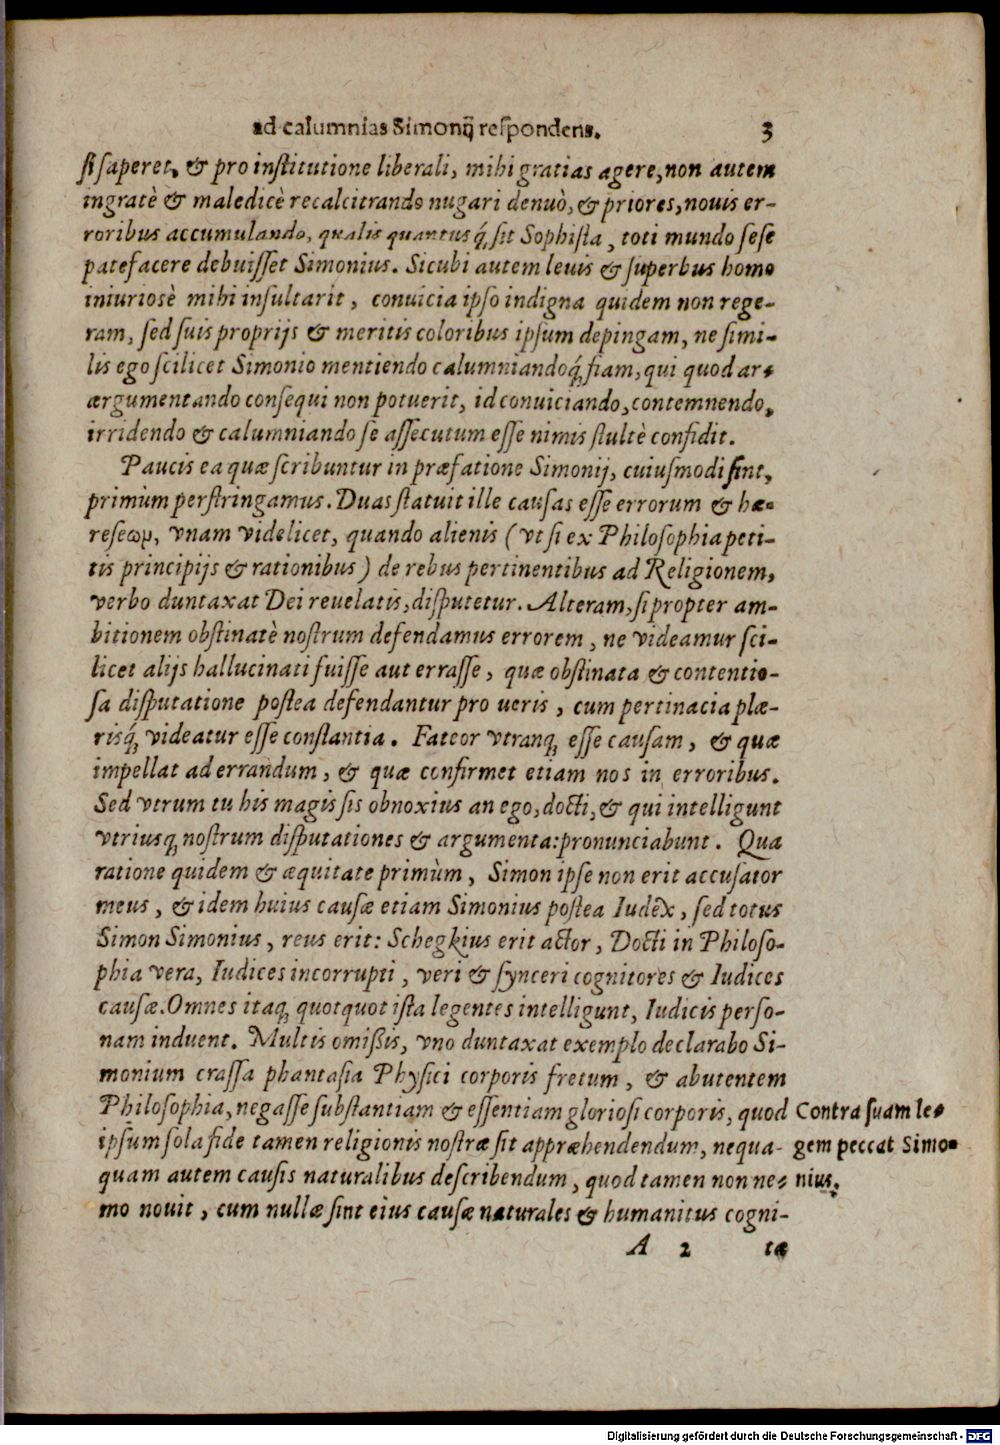 ad calumnias Simonij respondens. 3
si saperet, & pro institutione liberali, mihi gratias agere, non autem
ingratè & maledicè recalcitrando nugari denuò, & priores, nouis er-
roribus accumulando, qualis quantusq́; sit Sophista, toti mundo sese
patefacere debuisset Simonius. Sicubi autem leuis & superbus homo
iniuriosè mihi insultarit, conuicia ipso indigna quidem non rege-
ram, sed suis proprijs & meritis coloribus ipsum depingam, ne simi-
lis ego scilicet Simonio mentiendo calumniandoq́; fiam, qui quod ar-
argumentando consequi non potuerit, id conuiciando, contemnendo,
irridendo & calumniando se assecutum esse nimis stultè confidit.
Paucis ea quæ scribuntur in præfatione Simonij, cuiusmodi sint,
primùm perstringamus. Duas statuit ille causas esse errorum & hæ-
reseωμ, vnam videlicet, quando alienis (vt si ex Philosophia peti-
tis principijs & rationibus) de rebus pertinentibus ad Religionem,
verbo duntaxat Dei reuelatis, disputetur. Alteram, si propter am-
bitionem obstinatè nostrum defendamus errorem, ne videamur sci-
licet alijs hallucinati fuisse aut errasse, quæ obstinata & contentio-
sa disputatione postea defendantur pro ueris, cum pertinacia plæ-
risq́; videatur esse constantia. Fateor vtranq; esse causam, & quæ
impellat ad errandum, & quæ confirmet etiam nos in erroribus.
Sed vtrum tu his magis sis obnoxius an ego, docti, & qui intelligunt
vtriusq; nostrum disputationes & argumenta: pronunciabunt. Qua
ratione quidem & æquitate primùm, Simon ipse non erit accusator
meus, & idem huius causæ etiam Simonius postea Iudex, sed totus
Simon Simonius, reus erit: Schegkius erit actor, Docti in Philoso-
phia vera, Iudices incorrupti, veri & synceri cognitores & Iudices
causæ. Omnes itaq; quotquot ista legentes intelligunt, Iudicis perso-
nam induent. Multis omißis, vno duntaxat exemplo declarabo Si-
monium crassa phantasia Physici corporis fretum, & abutentem
Philosophia, negasse substantiam & essentiam gloriosi corporis, quod
ipsum sola fide tamen religionis nostræ sit appræhendendum, nequa-
quam autem causis naturalibus describendum, quod tamen non ne-
mo nouit, cum nullæ sint eius causæ naturales & humanitus cogni-
Contra suam le-
gem peccat Simo-
nius.
A 2 tæ
Digitalisierung gefördert durch die Deutsche Forschungsgemeinschaft - DFG